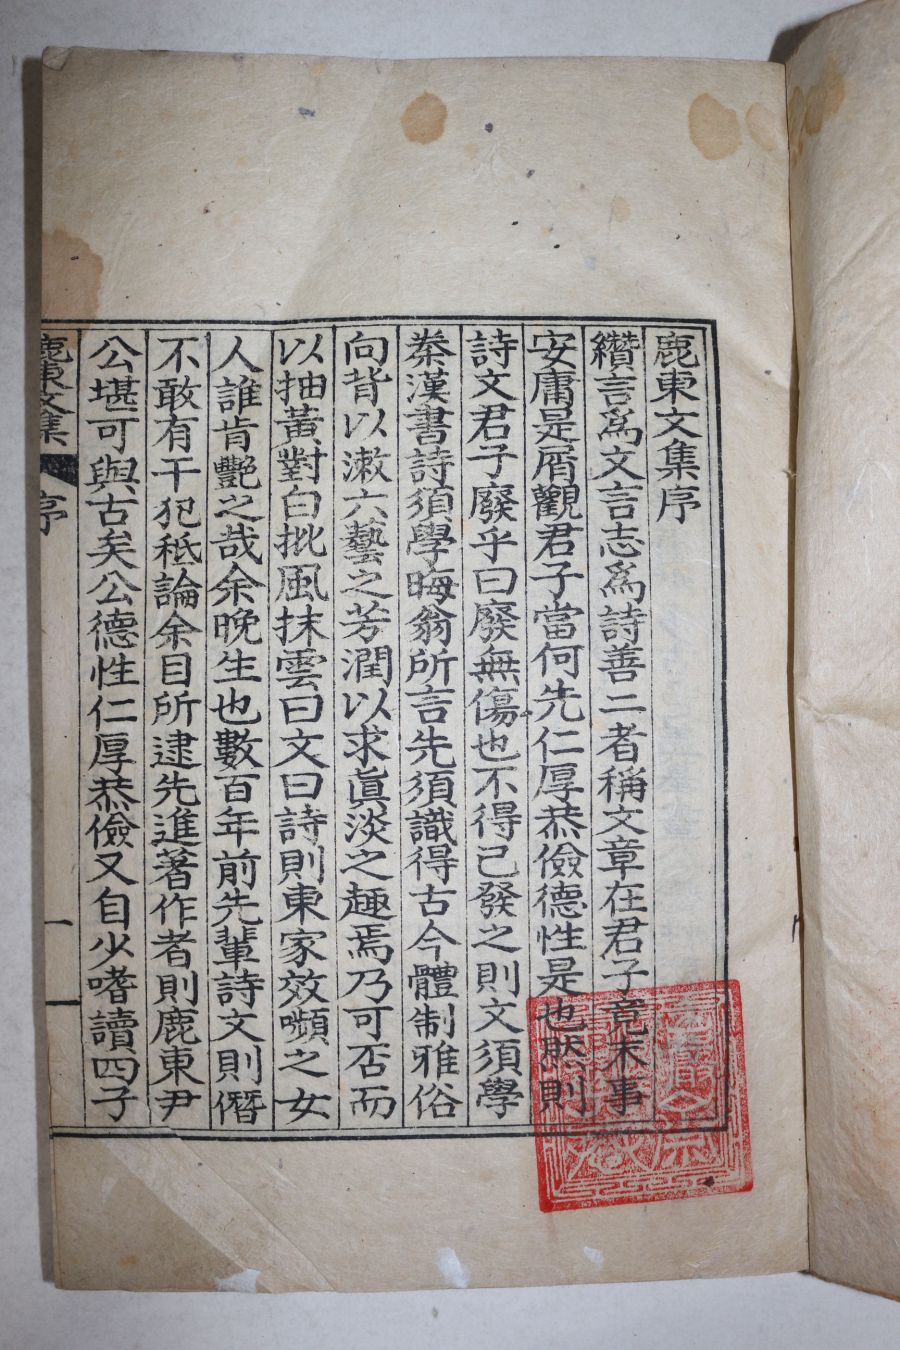 鹿東文集序
纘言爲文言志爲詩善二者稱文章在君子竟末事
安庸是屑觀君子當何先仁厚恭儉德性是也然則
詩文君子廢乎曰廢無傷也不得已發之則文須學
秦漢書詩須學晦翁所言先須識得古今體制雅俗
向背以漱六藝之芳潤以求眞淡之趣焉乃可否而
以抽黃對白批風抹雲曰文曰詩則東家效嚬之女
人誰肯艷之哉余晩生也數百年前先輩詩文則僭
不敢有干犯秪論余目所逮先進著作者則鹿東尹
公堪可與古矣公德性仁厚恭儉又自少嗜讀四子
鹿東文集 序 一